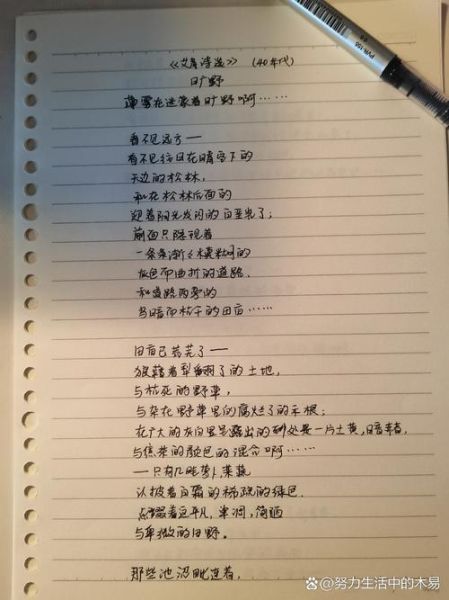 《艾青诗选》 (40年代)
旷野
薄雾在迷蒙着旷野啊……
看不见远方——
看不见往日在晴空下的
天边的松林,
和在松林后面的
迎着阳光发闪的白垩岩了;
前面只隐现着
一条条渐渐模糊的
灰色而曲折的道路,
和道路两旁的
乌暗而枯干的田亩……
田亩已荒芜了——
狼藉着犁翻了的土地,
与枯死的野草,
与杂在野草里的腐烂了的禾根;
在广大的灰白里呈露出的到处是一片土黄,暗赭,
与焦茶的颜色的混合啊……
——只有几畦萝卜,菜蔬
以披着白霜的稀疏的绿色,
点缀着平凡,单调,简陋
与卑微的田野。
那些池沼毗连着,
PVR-155
@努力生活中的木易